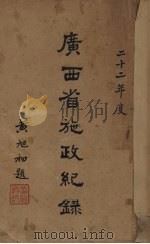 二十二年度
廣西省施政紀錄
黃旭初題